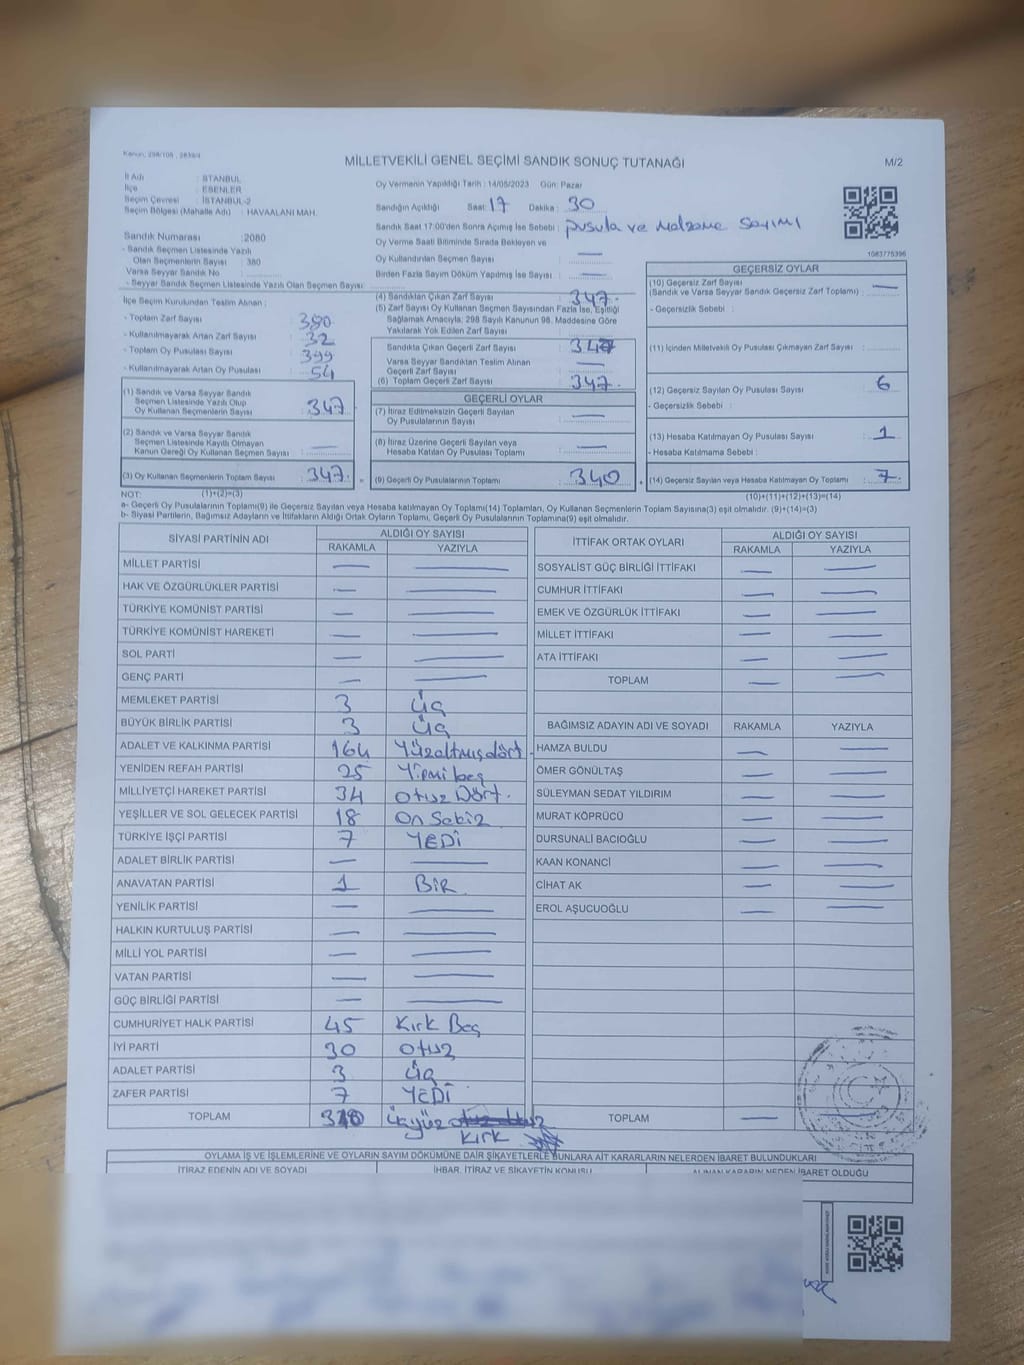 Kanun: 298/105 , 2839/4
MİLLETVEKİLİ GENEL SEÇİMİ SANDIK SONUÇ TUTANAĞI
M/2
İl Adı : İSTANBUL
İlçe : ESENLER
Seçim Çevresi : İSTANBUL-2
Seçim Bölgesi (Mahalle Adı) : HAVAALANI MAH.
Sandık Numarası :2080
- Sandık Seçmen Listesinde Yazılı
Olan Seçmenlerin Sayısı : 380
Varsa Seyyar Sandık No :
- Seyyar Sandık Seçmen Listesinde Yazılı Olan Seçmen Sayısı:
Oy Vermenin Yapıldığı Tarih : 14/05/2023 Gün: Pazar
Sandığın Açıldığı Saat: 17 Dakika : 30
Sandık Saat 17:00'den Sonra Açılmış İse Sebebi : pusula ve malzeme sayımı
Oy Verme Saati Bitiminde Sırada Bekleyen ve
Oy Kullandırılan Seçmen Sayısı : —
Birden Fazla Sayım Döküm Yapılmış İse Sayısı : —
1083775396
İlçe Seçim Kurulundan Teslim Alınan :
- Toplam Zarf Sayısı : 380
- Kullanılmayarak Artan Zarf Sayısı : 32
- Toplam Oy Pusulası Sayısı : 399
- Kullanılmayarak Artan Oy Pusulası : 54
(1) Sandık ve Varsa Seyyar Sandık
Seçmen Listesinde Yazılı Olup
Oy Kullanan Seçmenlerin Sayısı : 347
(2) Sandık ve Varsa Seyyar Sandık
Seçmen Listesinde Kayıtlı Olmayan
Kanun Gereği Oy Kullanan Seçmen Sayısı : —
(3) Oy Kullanan Seçmenlerin Toplam Sayısı : 347
(4) Sandıktan Çıkan Zarf Sayısı : 347
(5) Zarf Sayısı Oy Kullanan Seçmen Sayısından Fazla İse, Eşitliği
Sağlamak Amacıyla; 298 Sayılı Kanunun 98. Maddesine Göre
Yakılarak Yok Edilen Zarf Sayısı :
Sandıkta Çıkan Geçerli Zarf Sayısı : 347
Varsa Seyyar Sandıktan Teslim Alınan
Geçerli Zarf Sayısı : —
(6) Toplam Geçerli Zarf Sayısı : 347
GEÇERLİ OYLAR
(7) İtiraz Edilmeksizin Geçerli Sayılan
Oy Pusulalarının Sayısı : —
(8) İtiraz Üzerine Geçerli Sayılan veya
Hesaba Katılan Oy Pusulası Toplamı : —
(9) Geçerli Oy Pusulalarının Toplamı : 340
GEÇERSİZ OYLAR
(10) Geçersiz Zarf Sayısı
(Sandık ve Varsa Seyyar Sandık Geçersiz Zarf Toplamı) : —
- Geçersizlik Sebebi :
(11) İçinden Milletvekili Oy Pusulası Çıkmayan Zarf Sayısı :
(12) Geçersiz Sayılan Oy Pusulası Sayısı : 6
- Geçersizlik Sebebi :
(13) Hesaba Katılmayan Oy Pusulası Sayısı : 1
- Hesaba Katılmama Sebebi :
(14) Geçersiz Sayılan veya Hesaba Katılmayan Oy Toplamı : 7
NOT: (1)+(2)=(3) (10)+(11)+(12)+(13)=(14)
a- Geçerli Oy Pusulalarının Toplamı(9) ile Geçersiz Sayılan veya Hesaba katılmayan Oy Toplamı(14) Toplamları, Oy Kullanan Seçmenlerin Toplam Sayısına(3) eşit olmalıdır. (9)+(14)=(3)
b- Siyasi Partilerin, Bağımsız Adayların ve İttifakların Aldığı Ortak Oyların Toplamı, Geçerli Oy Pusulalarının Toplamına(9) eşit olmalıdır.
SİYASİ PARTİNİN ADI ALDIĞI OY SAYISI
RAKAMLA YAZIYLA
MİLLET PARTİSİ — —
HAK VE ÖZGÜRLÜKLER PARTİSİ — —
TÜRKİYE KOMÜNİST PARTİSİ — —
TÜRKİYE KOMÜNİST HAREKETİ — —
SOL PARTİ — —
GENÇ PARTİ — —
MEMLEKET PARTİSİ 3 üç
BÜYÜK BİRLİK PARTİSİ 3 üç
ADALET VE KALKINMA PARTİSİ 164 Yüzaltmışdört
YENİDEN REFAH PARTİSİ 25 Yirmi beş
MİLLİYETÇİ HAREKET PARTİSİ 34 otuz Dört.
YEŞİLLER VE SOL GELECEK PARTİSİ 18 On Sekiz
TÜRKİYE İŞÇİ PARTİSİ 7 YEDİ
ADALET BİRLİK PARTİSİ — —
ANAVATAN PARTİSİ 1 BİR
YENİLİK PARTİSİ — —
HALKIN KURTULUŞ PARTİSİ — —
MİLLİ YOL PARTİSİ — —
VATAN PARTİSİ — —
GÜÇ BİRLİĞİ PARTİSİ — —
CUMHURİYET HALK PARTİSİ 45 Kırk Beş
İYİ PARTİ 30 otuz
ADALET PARTİSİ 3 üç
ZAFER PARTİSİ 7 YEDİ
TOPLAM üçyüz
kırk
İTTİFAK ORTAK OYLARI ALDIĞI OY SAYISI
RAKAMLA YAZIYLA
SOSYALİST GÜÇ BİRLİĞİ İTTİFAKI — —
CUMHUR İTTİFAKI — —
EMEK VE ÖZGÜRLÜK İTTİFAKI — —
MİLLET İTTİFAKI — —
ATA İTTİFAKI — —
TOPLAM — —
BAĞIMSIZ ADAYIN ADI VE SOYADI RAKAMLA YAZIYLA
HAMZA BULDU — —
ÖMER GÖNÜLTAŞ — —
SÜLEYMAN SEDAT YILDIRIM — —
MURAT KÖPRÜCÜ — —
DURSUNALİ BACIOĞLU — —
KAAN KONANCİ — —
CİHAT AK — —
EROL AŞUCUOĞLU — —
TOPLAM —
OYLAMA İŞ VE İŞLEMLERİNE VE OYLARIN SAYIM DÖKÜMÜNE DAİR ŞİKAYETLERLE BUNLARA AİT KARARLARIN NELERDEN İBARET BULUNDUKLARI
İTİRAZ EDENİN ADI VE SOYADI İHBAR, İTİRAZ VE ŞİKAYETİN KONUSU ALINAN KARARIN NEDEN İBARET OLDUĞU